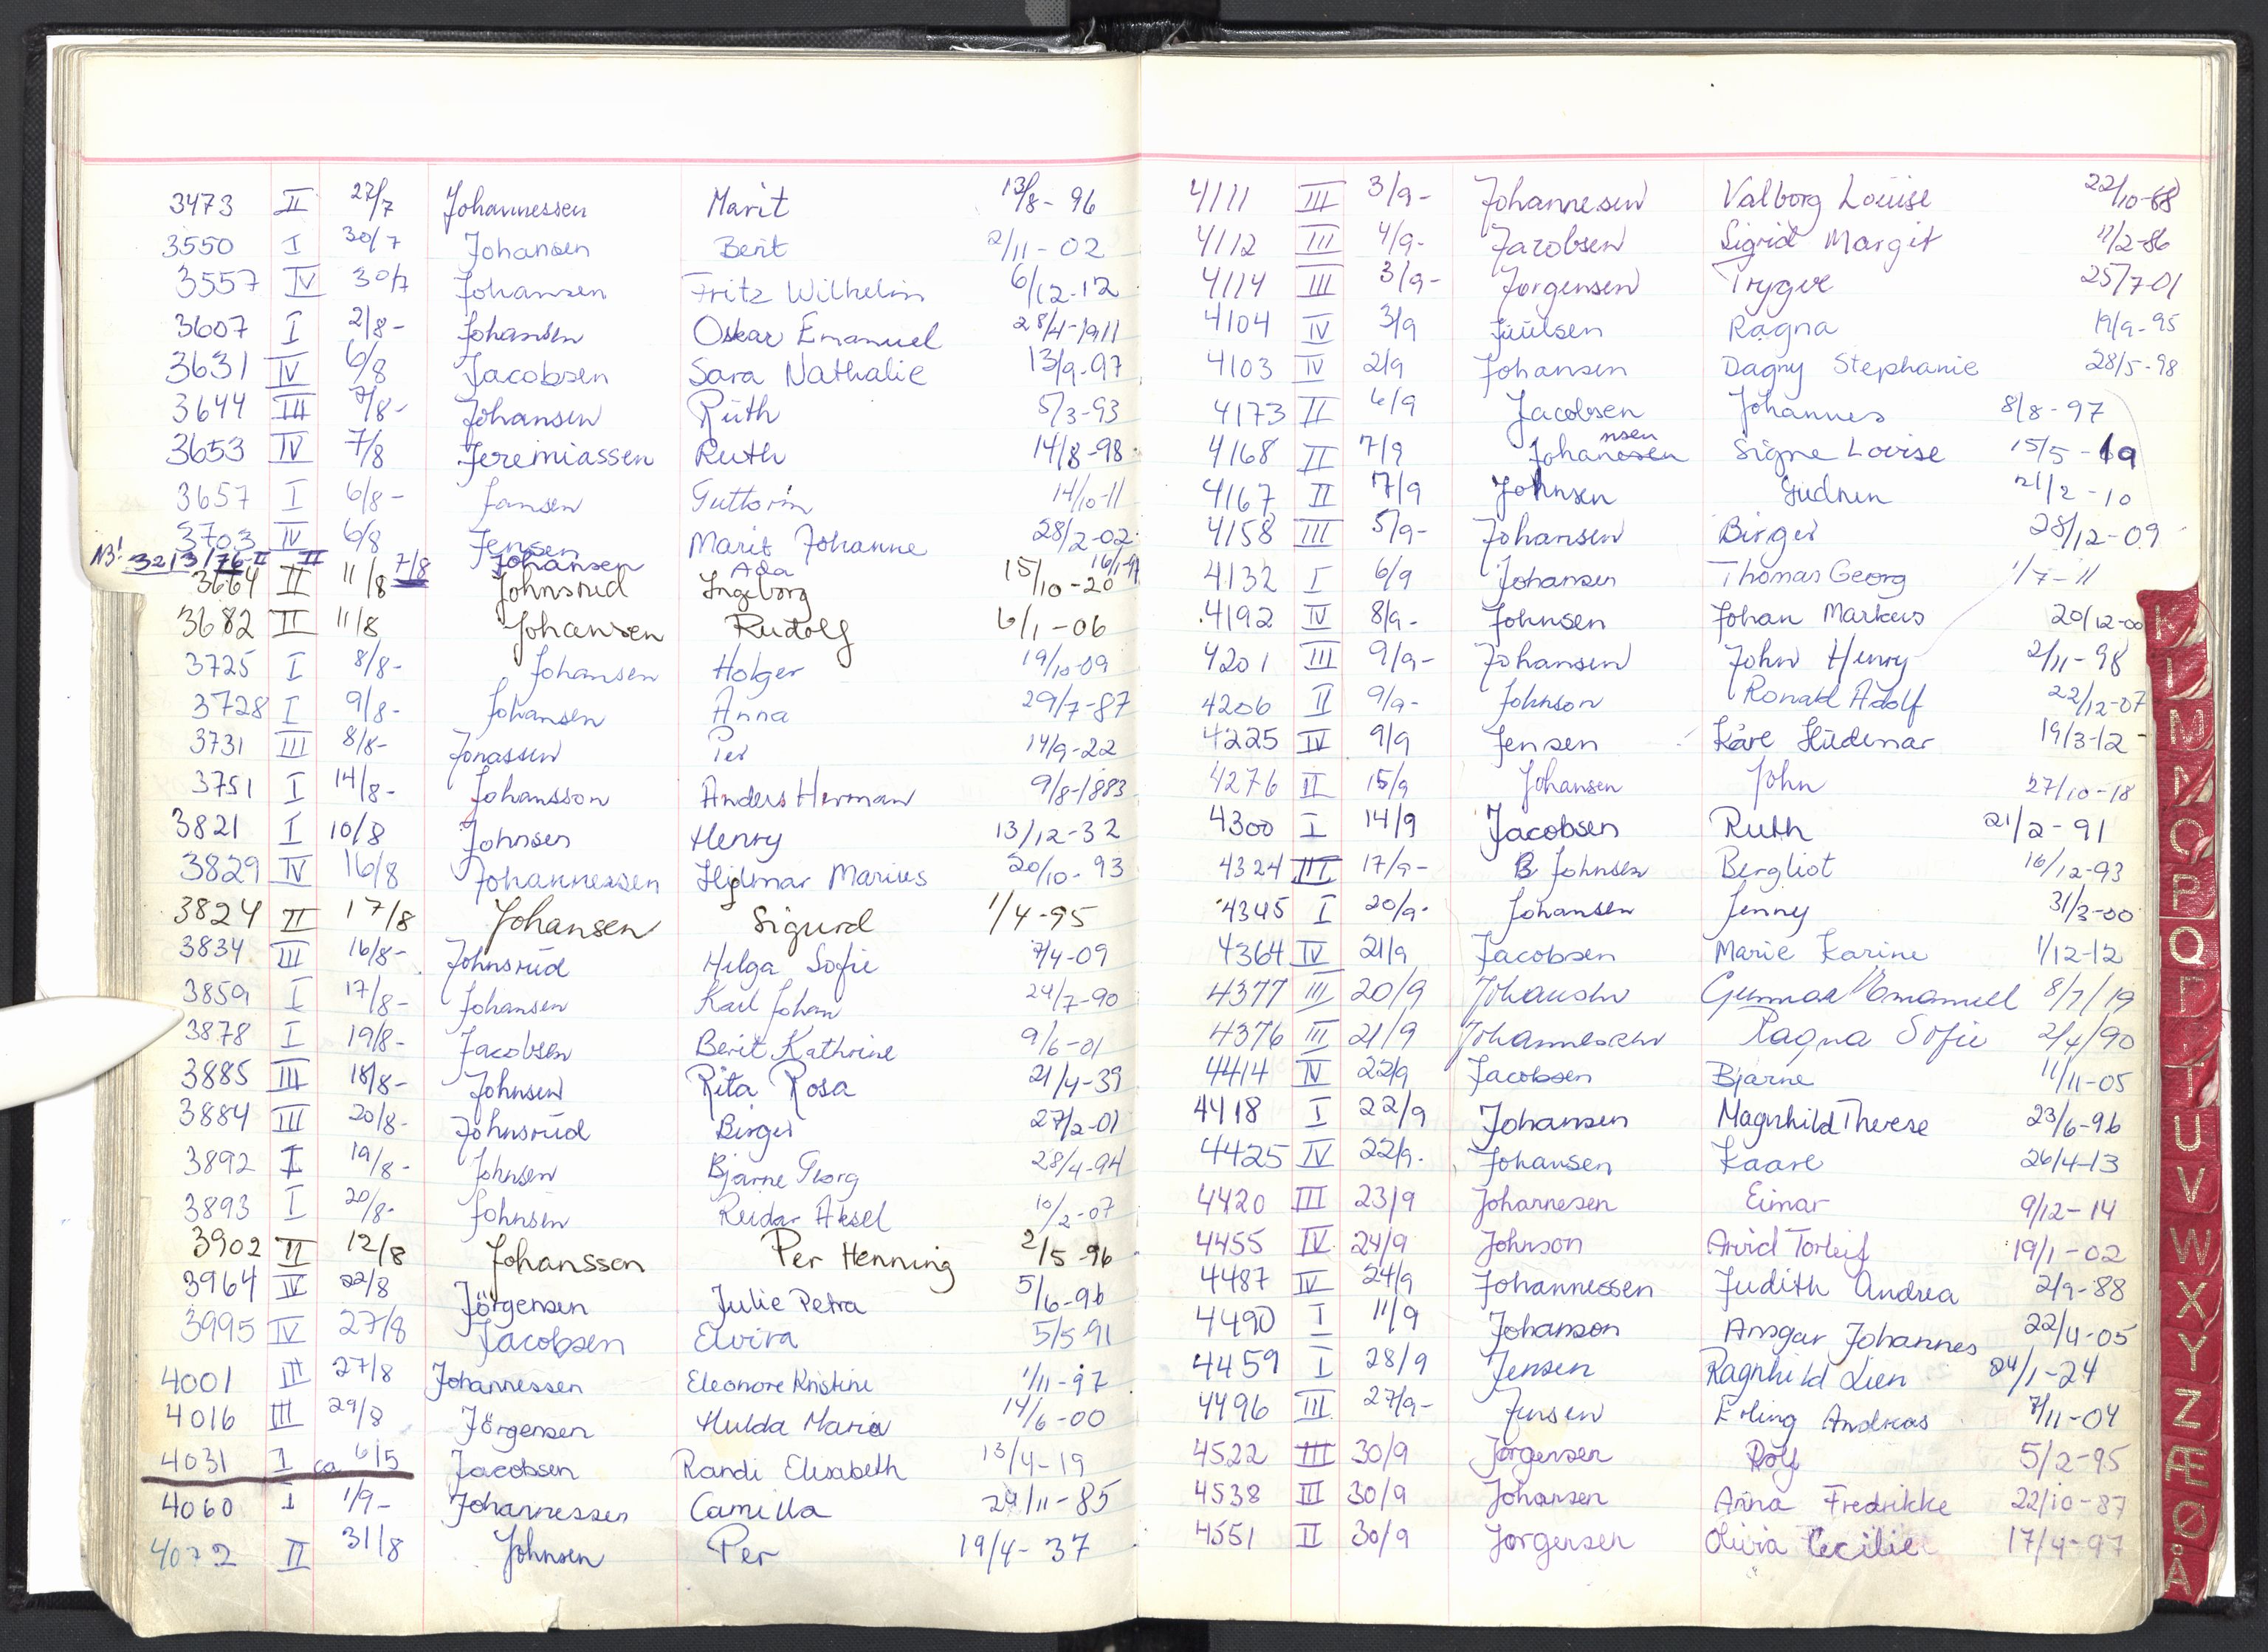 3473 II 27/7 Johannessen Marit 13/8 - 96
3550 I 30/7 Johansen Berit 2/11 - 02
3557 IV 30/7 Johansen Fritz Wilhelm 6/12-12
3607 I 2/8 - Johansen Oskar Emanuel 28/4-1911
3631 IV 6/8 Jacobsen Sara Nathalie 13/9-97
3644 III 7/8 - Johansen Ruth 5/3-93
3653 IV 7/8 Jeremiassen Ruth 14/8-98
3657 I 6/8 - Jansen Guttorm 14/10-11
3703 IV 6/8 Jensen Marit Johanne 28/2-02
NB! 3213/76-II II 7/8 Johansen Ada 16/1-
3664 II 11/8 Johnsrud Ingeborg 15/10-20
3682 II 11/8 Johansen Rudolf 6/1-06
3725 I 8/8- Johansen Holger 19/10-09
3728 I 9/8- Johansen Anna 29/7-87
3731 III 8/8- Jonassen Per 14/9-22
3751 I 14/8- Johansson Anders Herman 9/8-1883
3821 I 10/8 Johnsen Henry 13/12-32
3829 IV 16/8 Johannessen Hjalmar Marius 20/10-93
3824 II 17/8 Johansen Sigurd 1/4-95
3834 III 16/8- Johnsrud Helga Sofie 7/4-09
3859 I 17/8- Johansen Karl Johan 24/7-90
3878 I 19/8- Jacobsen Berit Kathrine 9/6-01
3885 III 18/8- Johnsen Rita Rosa 21/4-39
3884 III 20/8- Johnsrud Birger 27/2-01
3892 I 19/8- Johnsen Bjarne Georg 28/4-94
3893 I 20/8- Johnsen Reidar Aksel 10/2-07
3902 II 12/8 Johanssen Per Henning 2/5-96
3964 IV 22/8 Jörgensen Julie Petra 5/6-96
3995 IV 27/8 Jacobsen Elvira 5/5-91
4001 III 27/8 Johannessen Eleonore Kristine 1/11-97
4016 III 29/8 Jörgensen Hulda Maria 14/6-00
4031 I ca 6/5 Jacobsen Randi Elisabeth 13/4-19
4060 I 1/9- Johannessen Camilla 29/11-85
4072 II 31/8 Johnsen Per 19/4-37
4111 III 3/9- Johannesen Valborg Louise 22/10-68
4112 III 4/9- Jacobsen Sigrid Margit 11/2-86
4114 III 3/9- Jørgensen Trygve 25/7-01
4104 IV 3/9 Juulsen Ragna 19/9-95
4103 IV 2/9 Johansen Dagny Stephanie 28/5-98
4173 II 6/9 Jacobsen Johannes 8/8-97
4168 II 7/9 Johansen nsen Signe Lovise 15/5-19
4167 II 7/9 Johnsen Gudrun 21/2-10
4158 III 5/9- Johansen Birger 28/12-09
4132 I 6/9 Johansen Thomas Georg 1/7-11
4192 IV 8/9- Johnsen Johan Markus 20/12-00
4201 III 9/9- Johansen John Henry 2/11-98
4206 II 9/9- Johnson Ronald Adolf 22/12-07
4225 IV 9/9 Jensen Kåre Hildemar 19/3-12
4276 II 15/9 Johansen John 27/10-18
4300 I 14/9 Jacobsen Ruth 21/2-91
4324 III 17/9- B Johnsen Bergliot 16/12-93
4345 I 20/9- Johansen Jenny 31/3-00
4364 IV 21/9 Jacobsen Marie Karine 1/12-12
4377 III 20/9 Johansen Gunnar Emanuel 8/7/19
4376 III 21/9 Johannessen Ragna Sofie 2/4/90
4414 IV 22/9 Jacobsen Bjarne 11/11-05
4418 I 22/9 Johansen Magnhild Therese 23/6-96
4425 IV 22/9- Johansen Kaare 26/4-13
4420 III 23/9 Johannesen Einar 9/12-14
4455 IV 24/9 Johnson Arvid Torleif 19/1-02
4487 IV 24/9 Johannessen Judith Andrea 2/9-88
4490 I 11/9 Johanson Ansgar Johannes 22/4-05
4459 I 28/9 Jensen Ragnhild Lien 24/1-24
4496 III 27/9- Jensen Erling Andreas 7/11-04
4522 III 30/9 Jørgensen Rolf 5/2-95
4538 III 30/9 Johansen Anna Fredrikke 22/10-87
4551 II 30/9 Jørgensen Olivia Cecilie 17/4-97
K
L
M
N
O
P
Q
R
T
U
V
W
X
Y
Z
Æ
Ø
Å